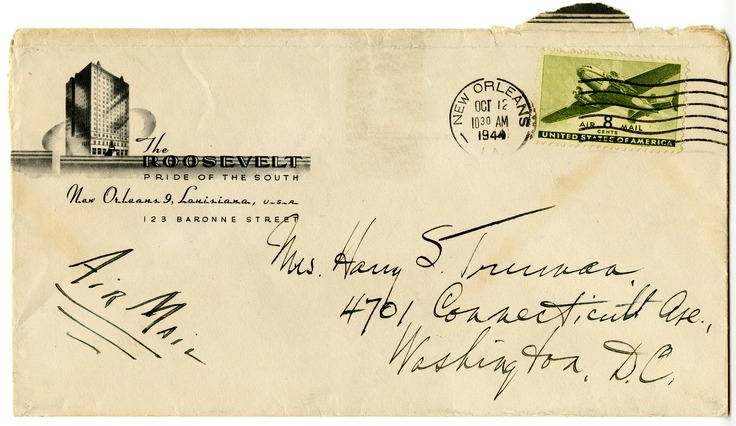 The
ROOSEVELT
PRIDE OF THE SOUTH
New Orleans 9, Louisiana, U.S.A.
123 BARONNE STREET
NEW ORLEANS
OCT 12
10 30 AM
1944
AIR 8 MAIL
CENTS
UNITED STATES OF AMERICA
Air Mail
Mrs. Harry S. Truman,
4701 Connecticutt Ave.,
Washington, D.C.